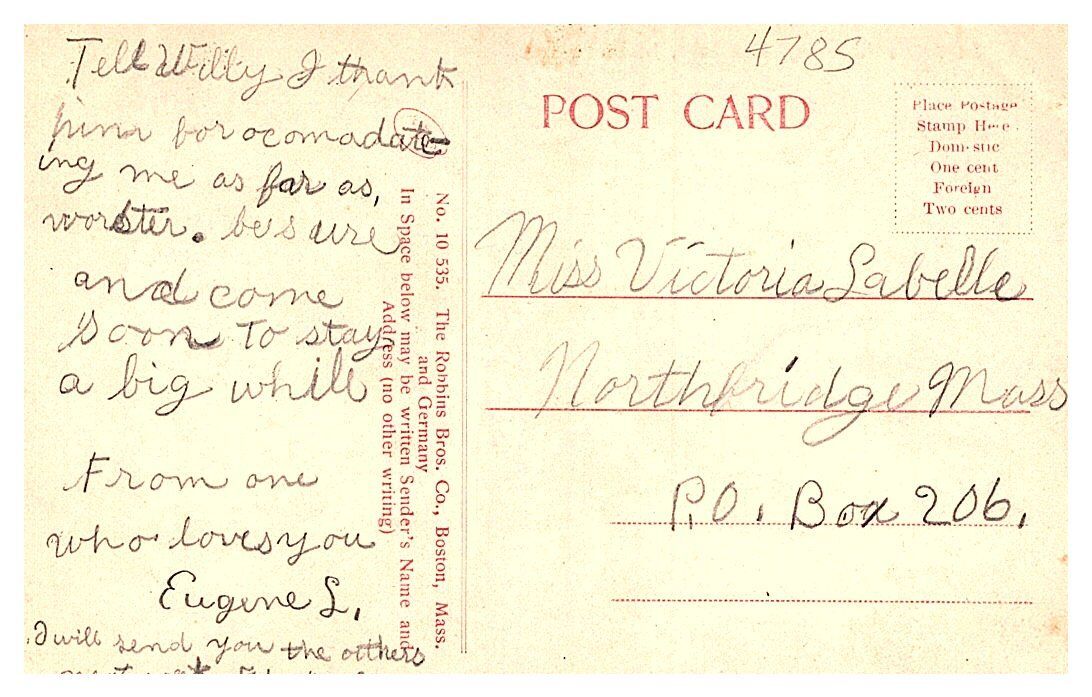 Tell Willy I thank
him for ocomadate
ing me as far as,
worster. be sure
and come
soon To stay
a big while
From one
who loves you
Eugene L.
I will send you the others
No. 10 535. The Robbins Bros. Co., Boston, Mass.
and Germany
In Space below may be written Sender's Name and
Address (no other writing)
4785
POST CARD
Place Postage
Stamp Here
Domestic
One cent
Foreign
Two cents
Miss Victoria Labelle
Northbridge Mass
P.O. Box 206.